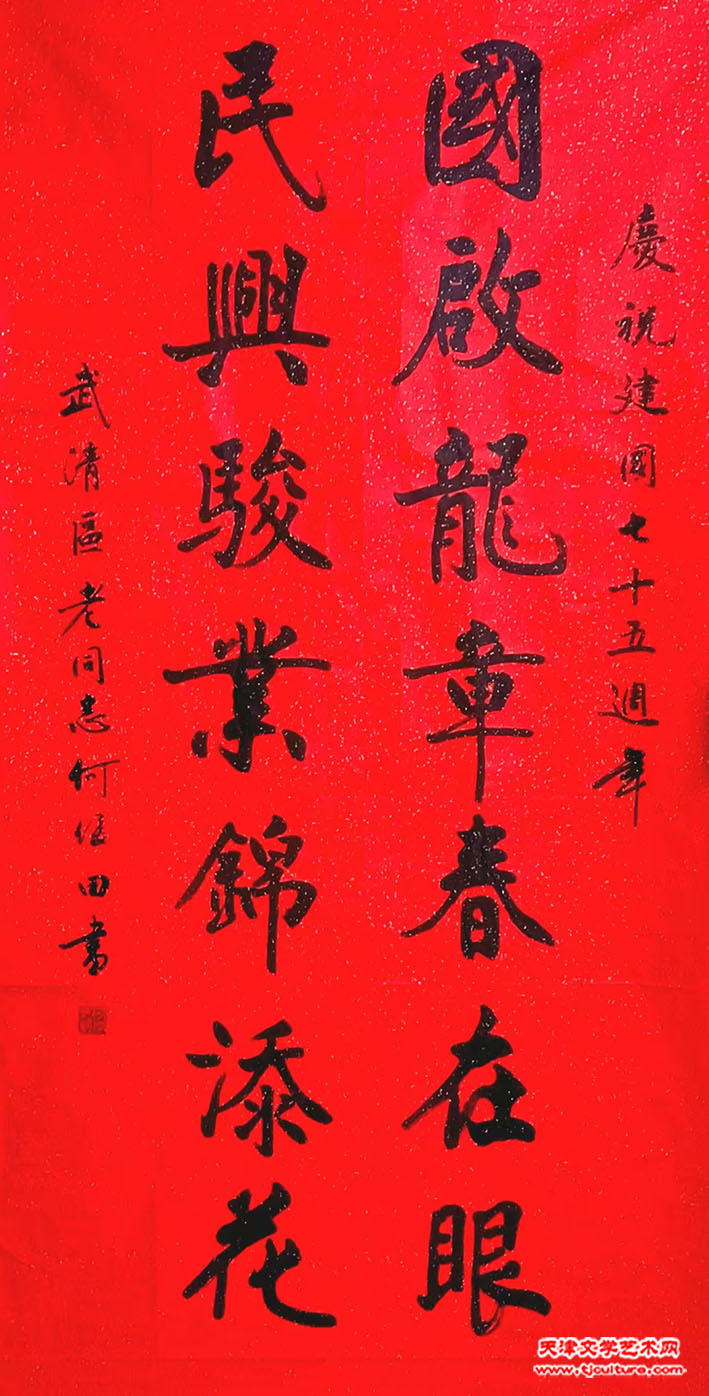 慶祝建國七十五週年
國啟龍章春在眼
民興駿業錦添花
武清區老同志何恆田書
天津文学艺术网
www.tjculture.com